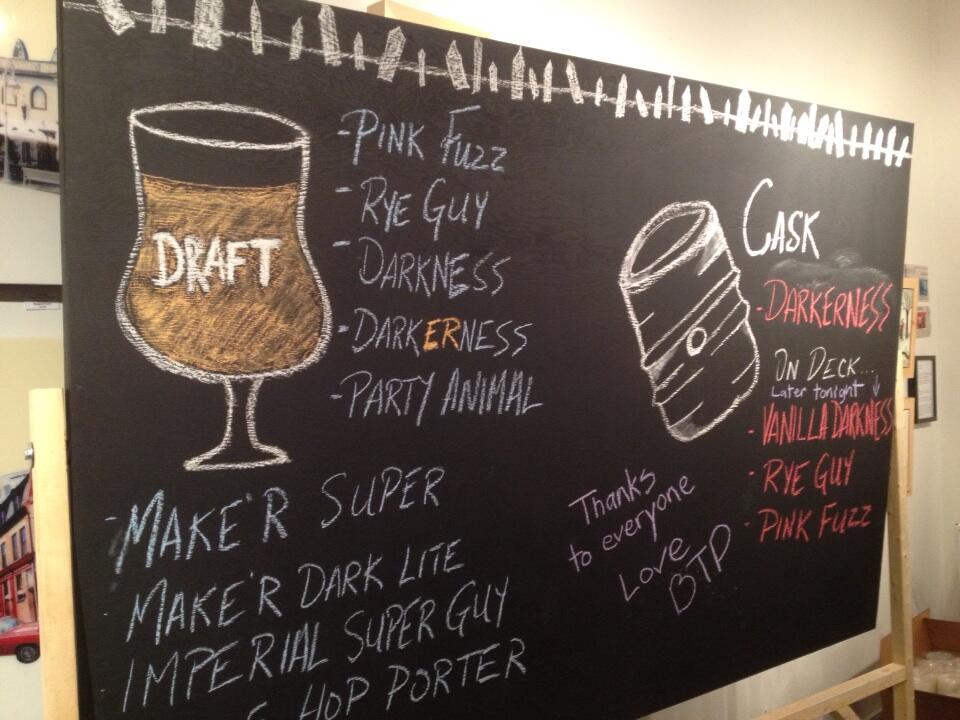 DRAFT
-PINK FUZZ
-RYE GUY
-DARKNESS
-DARKERNESS
-PARTY ANIMAL
-MAKE'R SUPER
MAKE'R DARK LITE
IMPERIAL SUPER GUY
HOP PORTER
CASK
-DARKERNESS
ON DECK...
Later tonight ↓
-VANILLA DARKNESS
-RYE GUY
-PINK FUZZ
Thanks
to everyone
Love
BTP